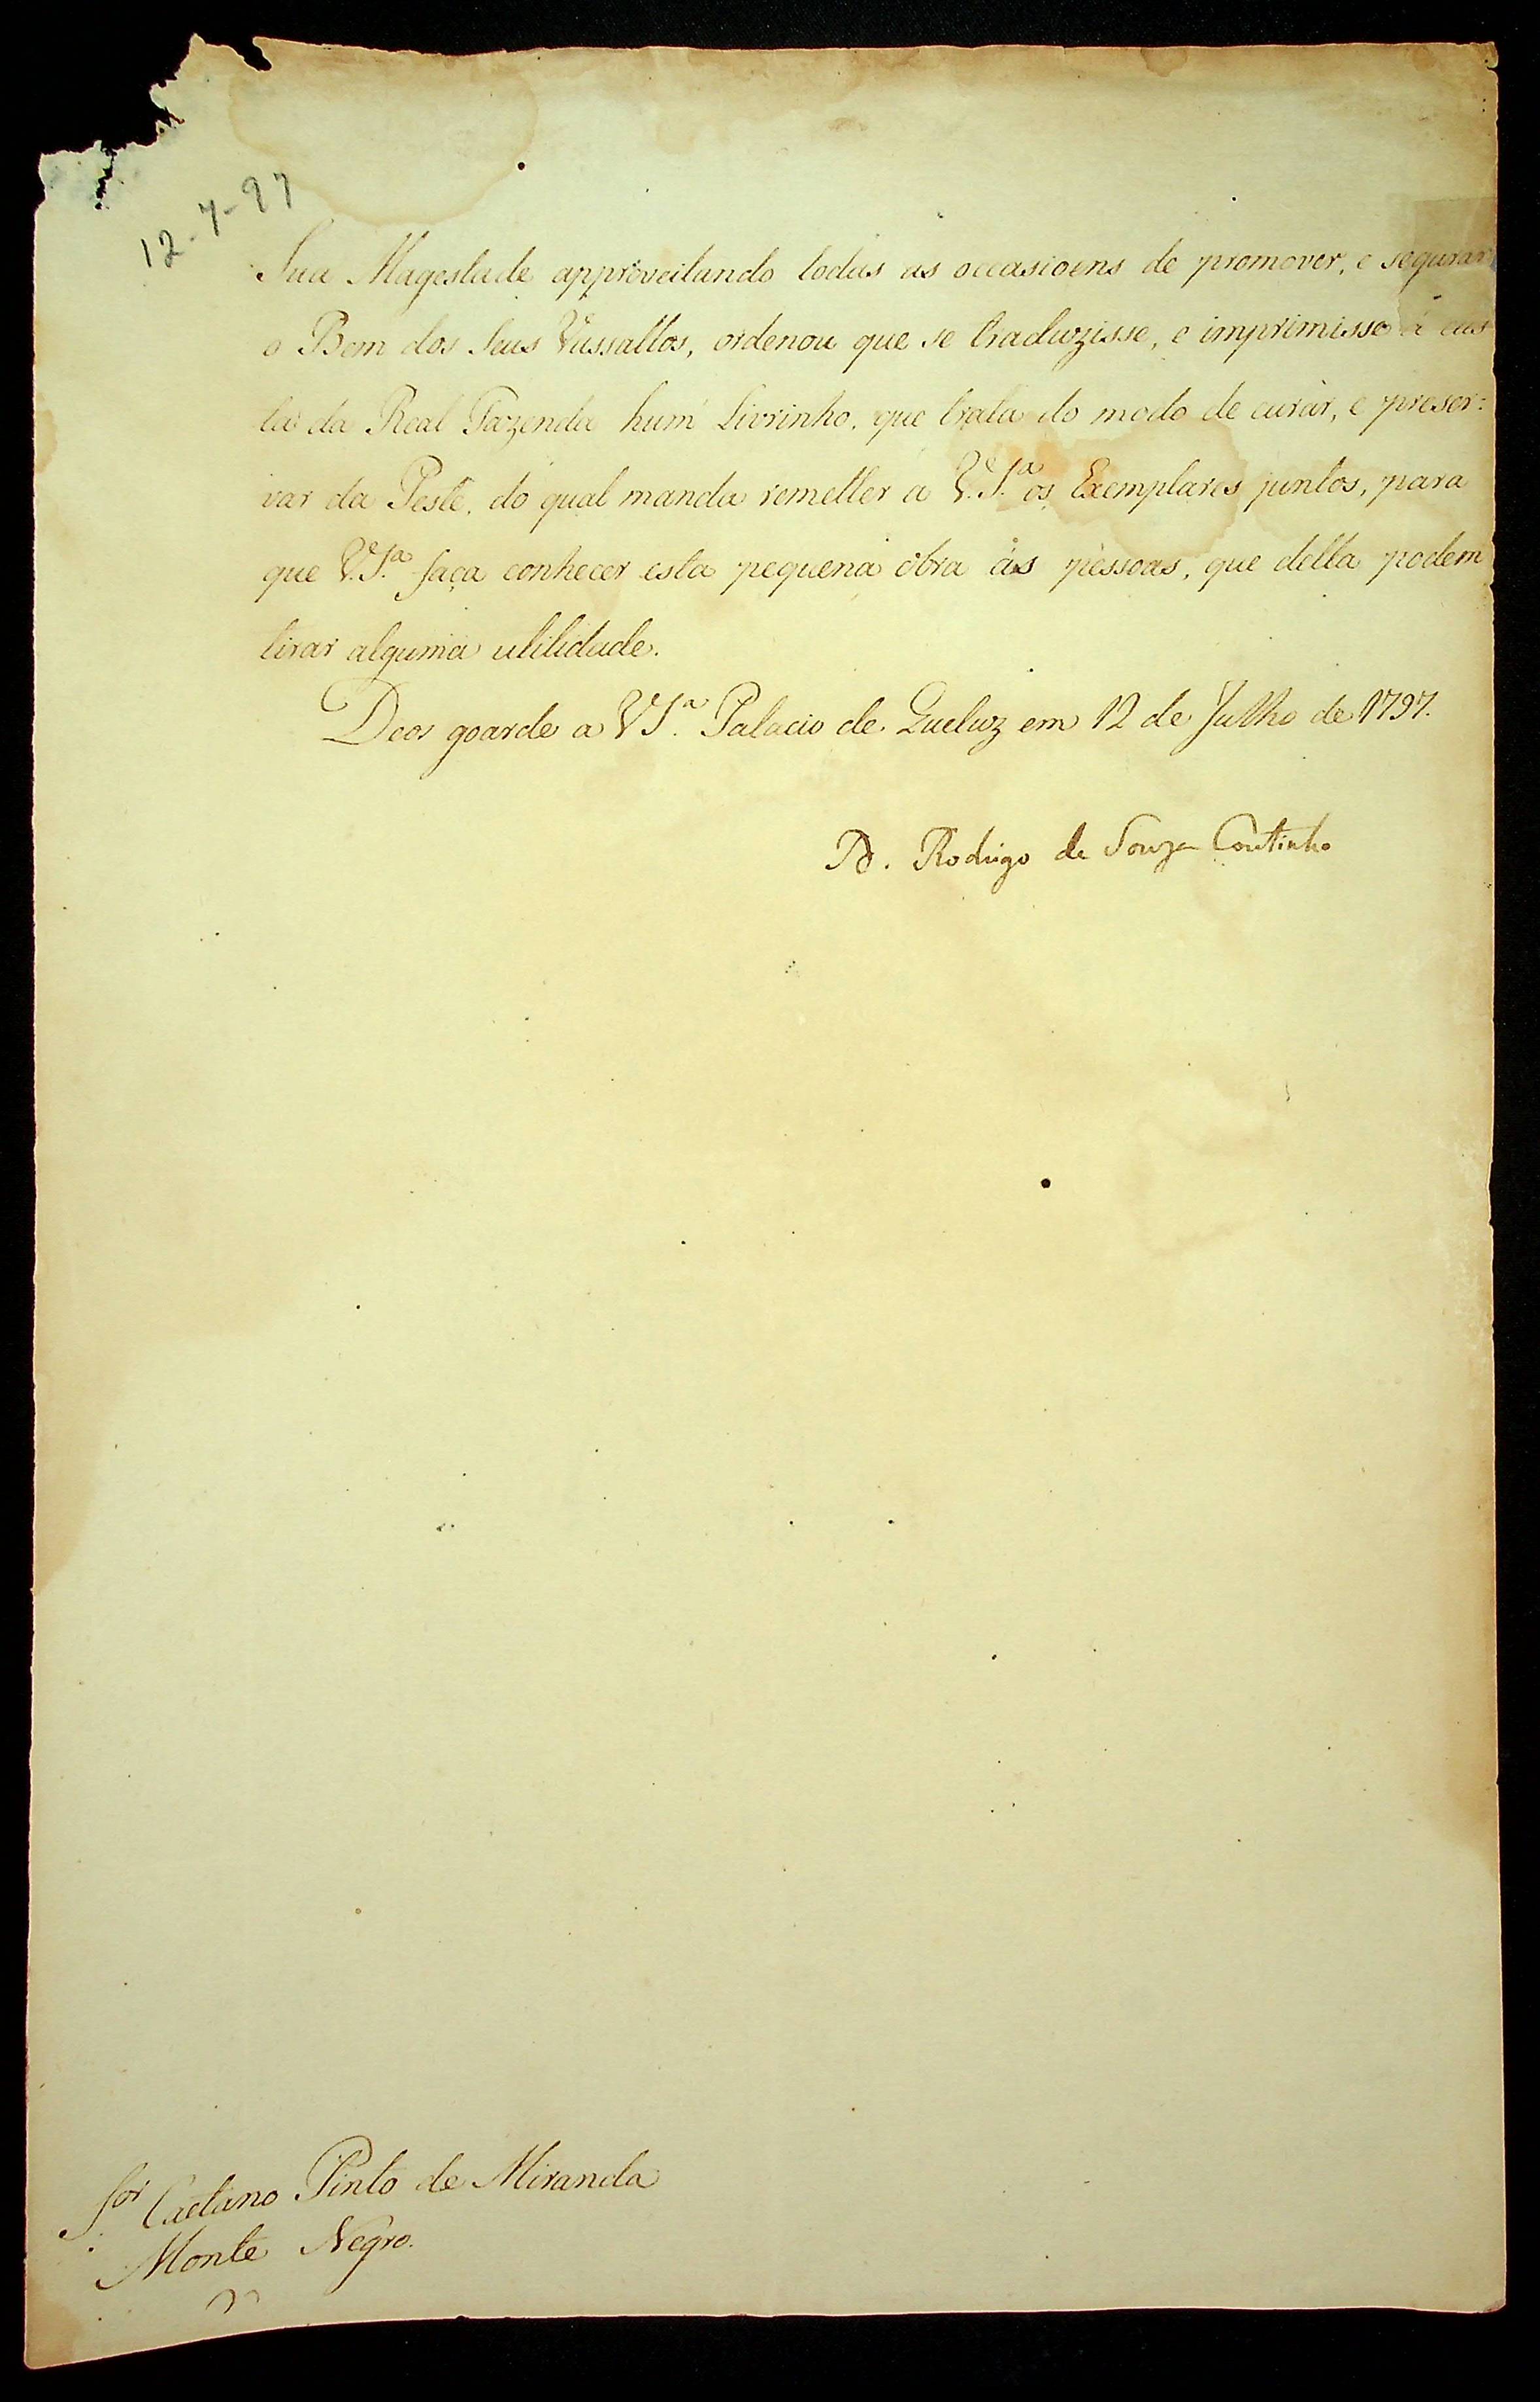 12-7-97
Sua Magestade approveitando todas as occasioens de promover, e segurar
o Bem dos Seus Vassallos, ordenou que se traduzisse, e imprimisse á cus
ta da Real Fazenda hum Livrinho, que trata do modo de curar, e preser:
var da Peste, do qual manda remetter a V.S.ª os Exemplares juntos, para
que V.S.ª faça conhecer esta pequena obra ás pessoas, que della podem
tirar alguma utilidade.
Deos goarde a V S.ª Palacio de Queluz em 12 de Julho de 1797.
D. Rodrigo de Souza Coutinho
S.or Caetano Pinto de Miranda
Monte Negro.